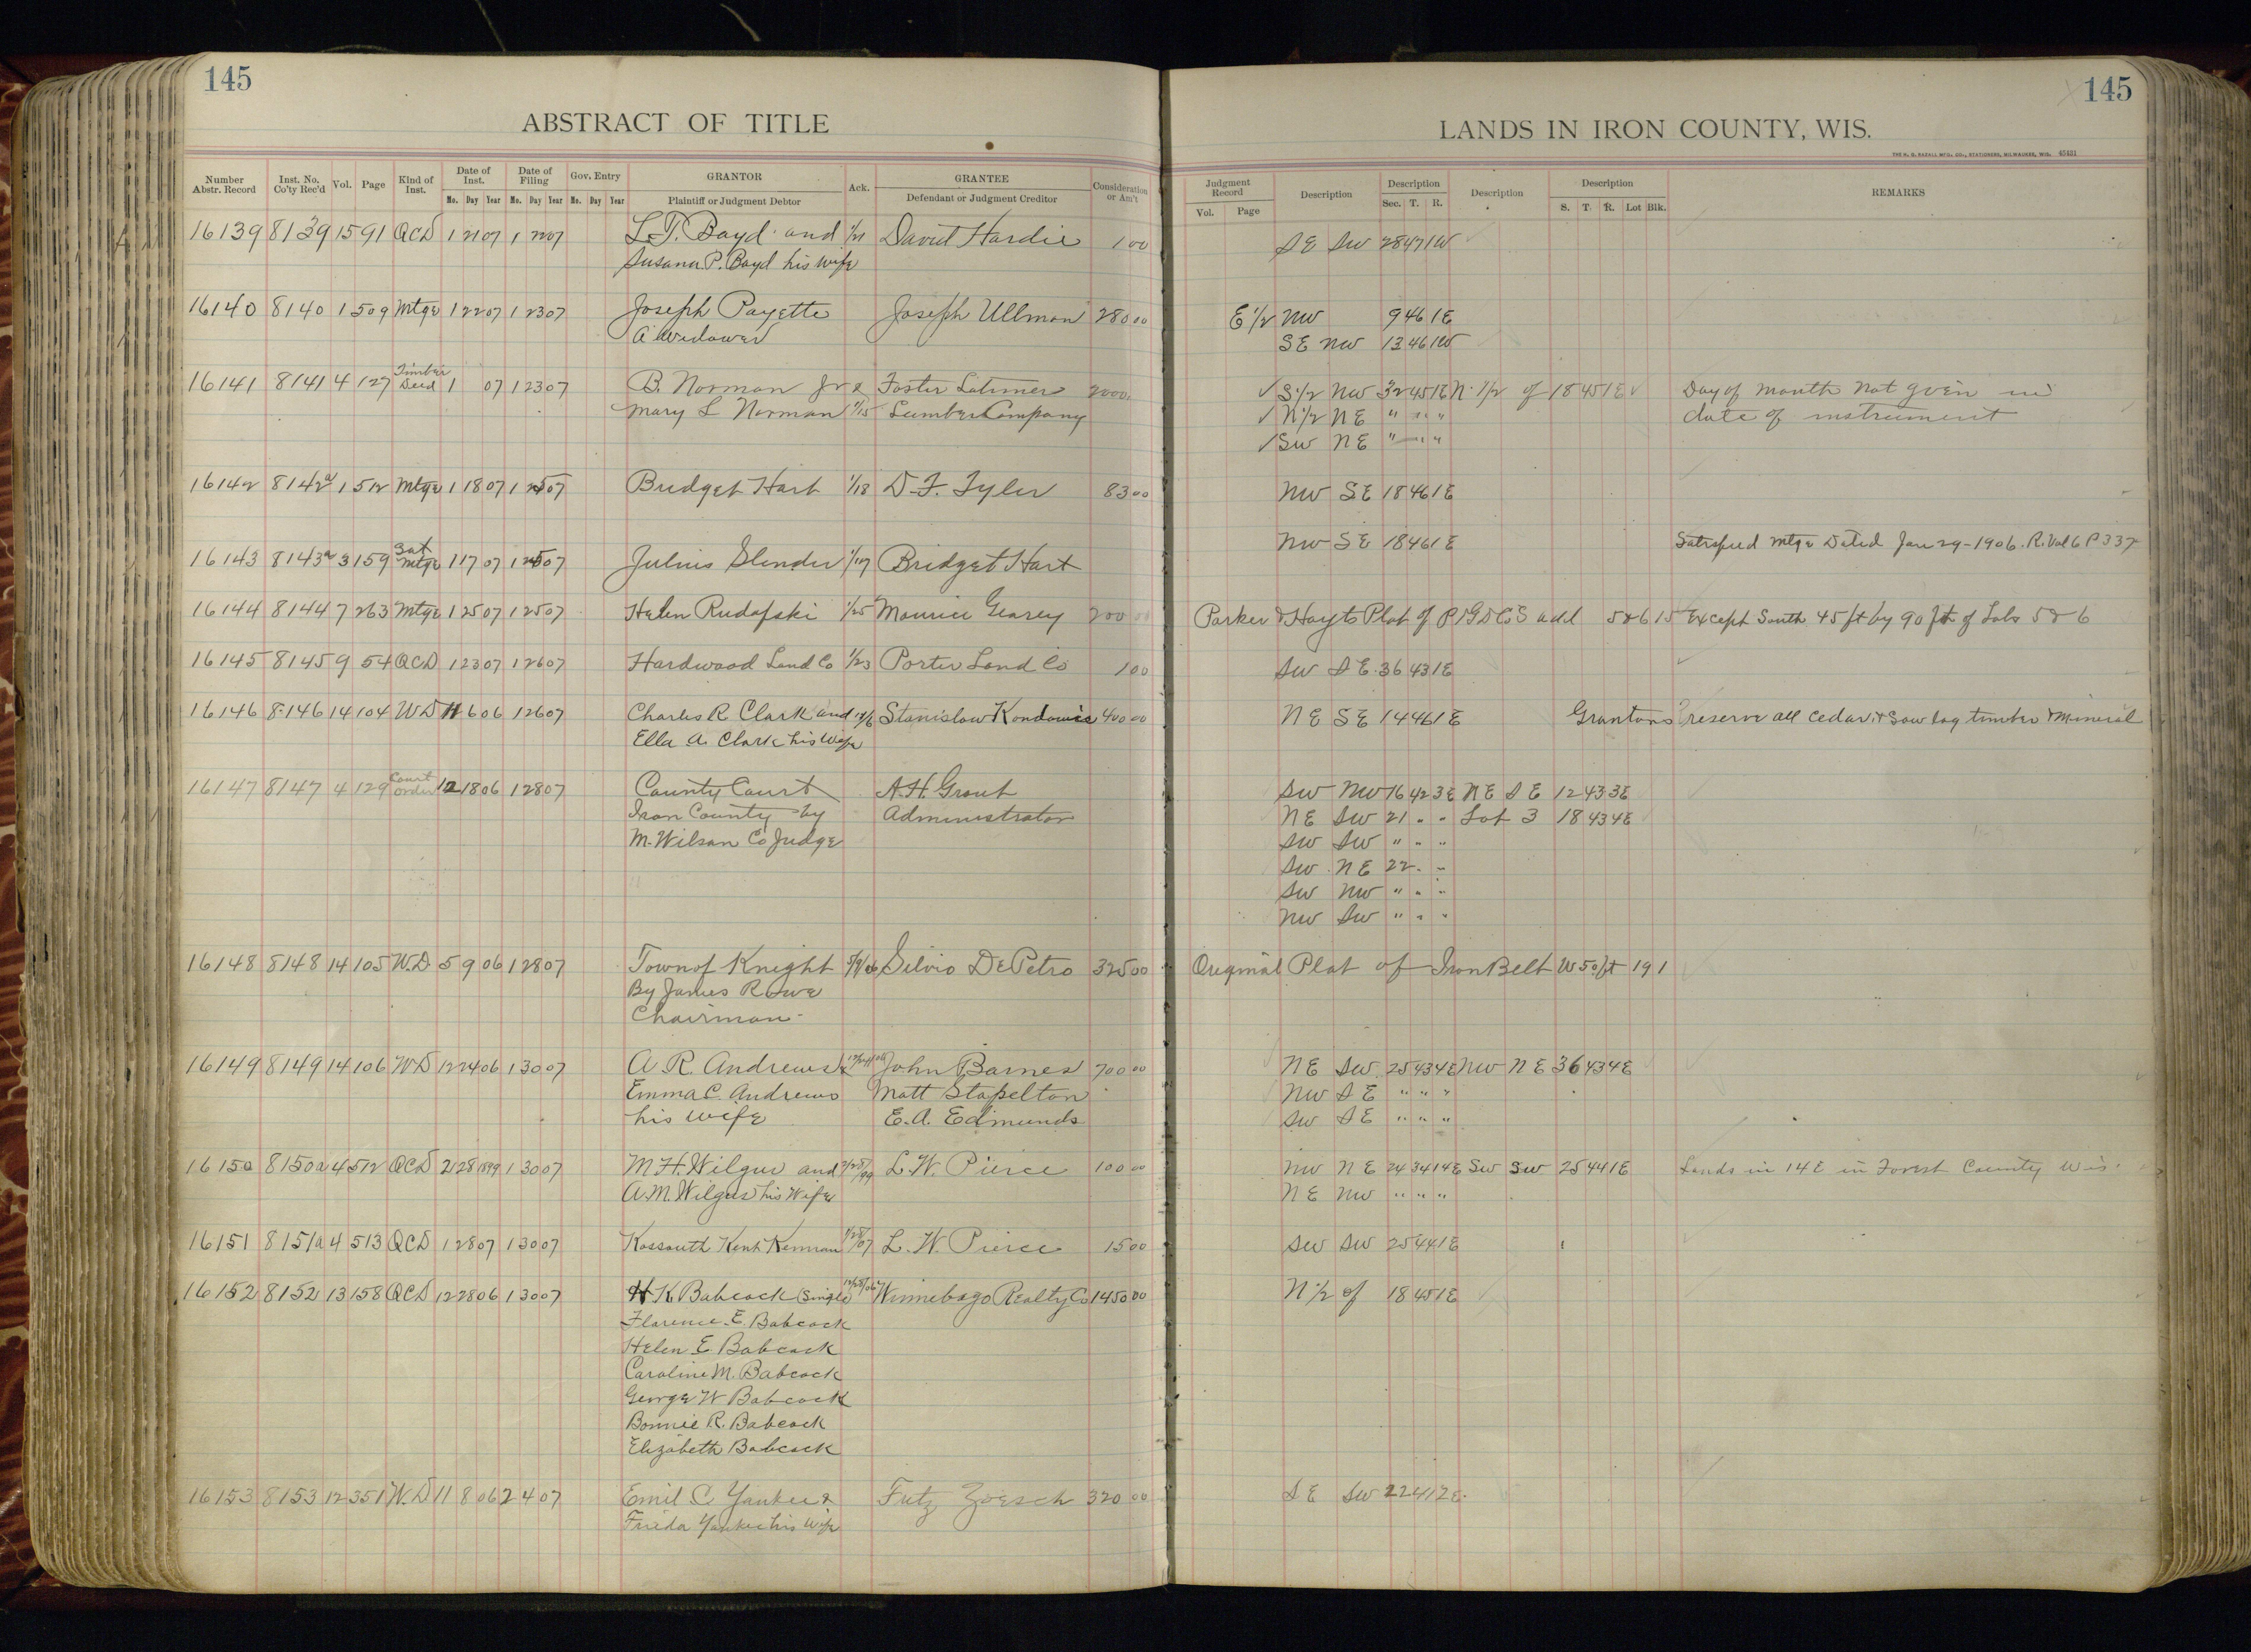 145
ABSTRACT OF TITLE
Number Abstr. Record Inst. No. Co'ty Rec'd Vol. Page Kind of Inst. Date of Inst. Mo. Day Year Date of Filing Mo. Day Year Gov. Entry Mo. Day Year GRANTOR Plaintiff or Judgment Debtor Ack. GRANTEE Defendant or Judgment Creditor Consideration or Am't
16139 8139 15 91 QCD 1 21 07 1 22 07 L.T. Boyd and 1/21 David Hardie 1 00
Susana P. Boyd his wife
16140 8140 1 509 Mtge 1 22 07 1 23 07 Joseph Payette Joseph Ullman 280 00
A widower
16141 8141 4 127 Timber Deed 1 07 1 23 07 B. Norman Jr & Foster Latimer 2000
Mary L Norman 1/15 Lumber Company
16142 8142a 1 512 Mtge 1 18 07 1 25 07 Bridget Hart 1/18 D.F. Tyler 83 00
16143 8143a 3 159 Sat Mtge 1 17 07 1 25 07 Julius Slender 1/17 Bridget Hart
16144 8144 7 263 Mtge 1 25 07 1 25 07 Helen Rudafski 1/25 Maurice Gearey 200 00
16145 8145 9 54 QCD 1 23 07 1 26 07 Hardwood Land Co 1/23 Porter Land Co 1 00
16146 8146 14 104 WD 11 6 06 1 26 07 Charles R Clark and Stanislaw Kondowis 400 00
Ella A. Clark his Wife
16147 8147 4 129 Court order 12 18 06 1 28 07 County Court A.H. Grout
Iron County by Administrator
M. Wilson Co Judge
16148 8148 14 105 W.D. 5 9 06 1 28 07 Town of Knight 5/9/06 Silvio DePetro 325 00
By James Rowe
Chairman
16149 8149 14 106 WD 12 24 06 1 30 07 A R. Andrews & 12/24/06 John Barnes 700 00
Emma C. Andrews Matt Stapelton
his wife E.A. Edmunds
16150 8150a 4 512 QCD 2 28 1899 1 30 07 M.H. Wilgus and 2/28/99 L.W. Pierce 100 00
A.M. Wilgus his Wife
16151 8151a 4 513 QCD 1 28 07 1 30 07 Kossouth Kent Kennan 1/28/07 L.W. Pierce 15 00
16152 8152 13 158 QCD 12 28 06 1 30 07 H K Babcock (Single 12/28/06 Winnebago Realty Co 1450 00
Florence E. Babcock
Helen E Babcock
Caroline M. Babcock
George W Babcock
Bonnie R. Babcock
Elizabeth Babcock
16153 8153 12 351 W.D 11 8 06 2 4 07 Emil C Yankee & Fritz Zoesch 320 00
Frieda Yankee his wife
145
LANDS IN IRON COUNTY, WIS.
THE H. G. RAZALL MFG. CO., STATIONERS, MILWAUKEE, WIS. 45431
Judgment Record Vol. Page Description Description Sec. T. R. Description Description S. T. R. Lot Blk. REMARKS
SE SW 28 47 1W
E 1/2 NW 9 46 1E
SE NW 13 46 1W
S 1/2 NW 32 45 1E N 1/2 of 18 45 1E Day of month not given in
N 1/2 NE " " " date of instrument
SW NE " " "
NW SE 18 46 1E
NW SE 18 46 1E Satisfied Mtge Dated Jan 29-1906. R. Vol 6 P 337
Parker & Hayts Plat of add 5 & 6 15 Except South 45 ft by 90 ft of Lots 5 & 6
SW SE 36 43 1E
NE SE 14 46 1E Grantors reserve all cedar & Saw log timber & Mineral
SW NW 16 42 3E NE SE 12 43 3E
NE SW 21 " " Lot 3 18 43 4E
SW SW " " "
SW NE 22 " "
SW NW " " "
NW SW " " "
Original Plat of Iron Belt W 50 ft 19 1
NE SW 25 43 4E NW NE 36 43 4E
NW SE " " "
SW SE " " "
NW NE 24 34 14E SW SW 25 44 1E Lands in 14E in Forest County Wis.
NE NW " " "
SW SW 25 44 1E
N 1/2 of 18 45 1E
SE SW 22 41 2E